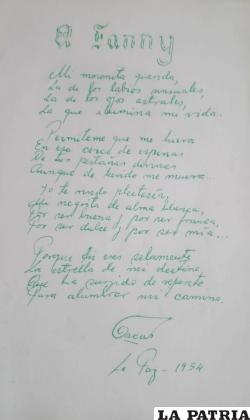 A Fanny
Mi morenita querida,
La de los labios sensuales,
La de los ojos astrales,
La que ilumina mi vida...
Permíteme que me hiera
En ese cerco de espinas
De tus pestañas divinas
Aunque de hondo me muera...
Yo te puedo
Mi negrita de alma blanca,
Por ser buena y por ser franca,
Por ser dulce y por ser mía...
Porque tú eres solamente
La estrella de mi destino
Que ha surgido de repente
Para alumbrar mi camino.
Oscar
La Paz - 1954
LA PATRIA